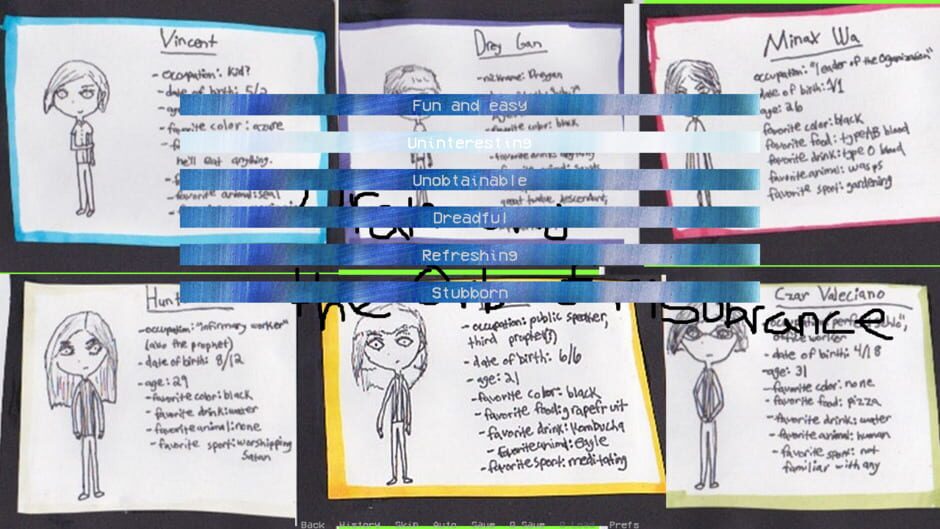 Vincent
-occupation: Kid?
-date of birth: 5/2
-favorite color: azure
he'll eat anything.
-favorite animal: seal
Drey Gan
-nickname: Dreygan
favorite color: black
great twelve descendant,
Minax Wa
occupation: "leader of the organization"
date of birth: 1/1
age: 26
favorite color: black
favorite food: type AB blood
favorite drink: type O blood
favorite animal: wasps
favorite sport: gardening
Fun and easy
Uninteresting
Unobtainable
Dreadful
Refreshing
Stubborn
the
Hunt
-occupation: "infirmary worker"
(also the prophet)
-date of birth: 8/12
-age: 29
-favorite color: black
-favorite drink: water
-favorite animal: none
-favorite sport: worshipping
Satan
-occupation: public speaker,
third prophet
-date of birth: 6/6
-age: 21
-favorite color: black
-favorite food: grapefruit
-favorite drink: Kombucha
-favorite animal: Eagle
-favorite sport: meditating
Czar Valeciano
office worker
-date of birth: 4/18
-age: 31
-favorite color: none
-favorite food: pizza
-favorite drink: water
-favorite animal: human
-favorite sport: not
familiar with any
Back History Skip Auto Save Q.Save Q.Load Prefs